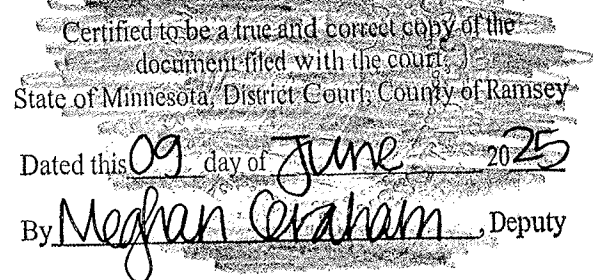 Certified to be a true and correct copy of the
document filed with the court.
State of Minnesota, District Court, County of Ramsey
Dated this 09 day of June 2025
By Meghan Graham, Deputy